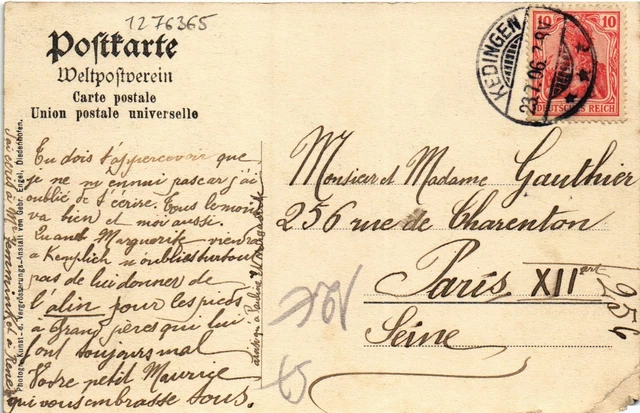 1276365
Postkarte
Weltpostverein
Carte postale
Union postale universelle
KEDINGEN
23.7.06
10 10
DEUTSCHES REICH
Tu dois t'appercevoir que
je ne m'ennui pas car j'ai
oublié de t'écrire. Tous le monde
va bien et moi aussi.
Quand Marguerite viendra
à n'oublies surtout
pas de lui donner de
l'alin pour les pieds
à Grand pères qui lui
font toujours mal
Votre petit Maurice
qui vous embrasse tous.
J'ai écris à Mr
à Pauline et Marguerite
Photogr. Kunst- u. Vergrösserungs-Anstalt von Gebr. Engel, Diedenhofen.
Monsieur et Madame Gauthier
256 rue de Charenton
Paris XIIart
Seine
256